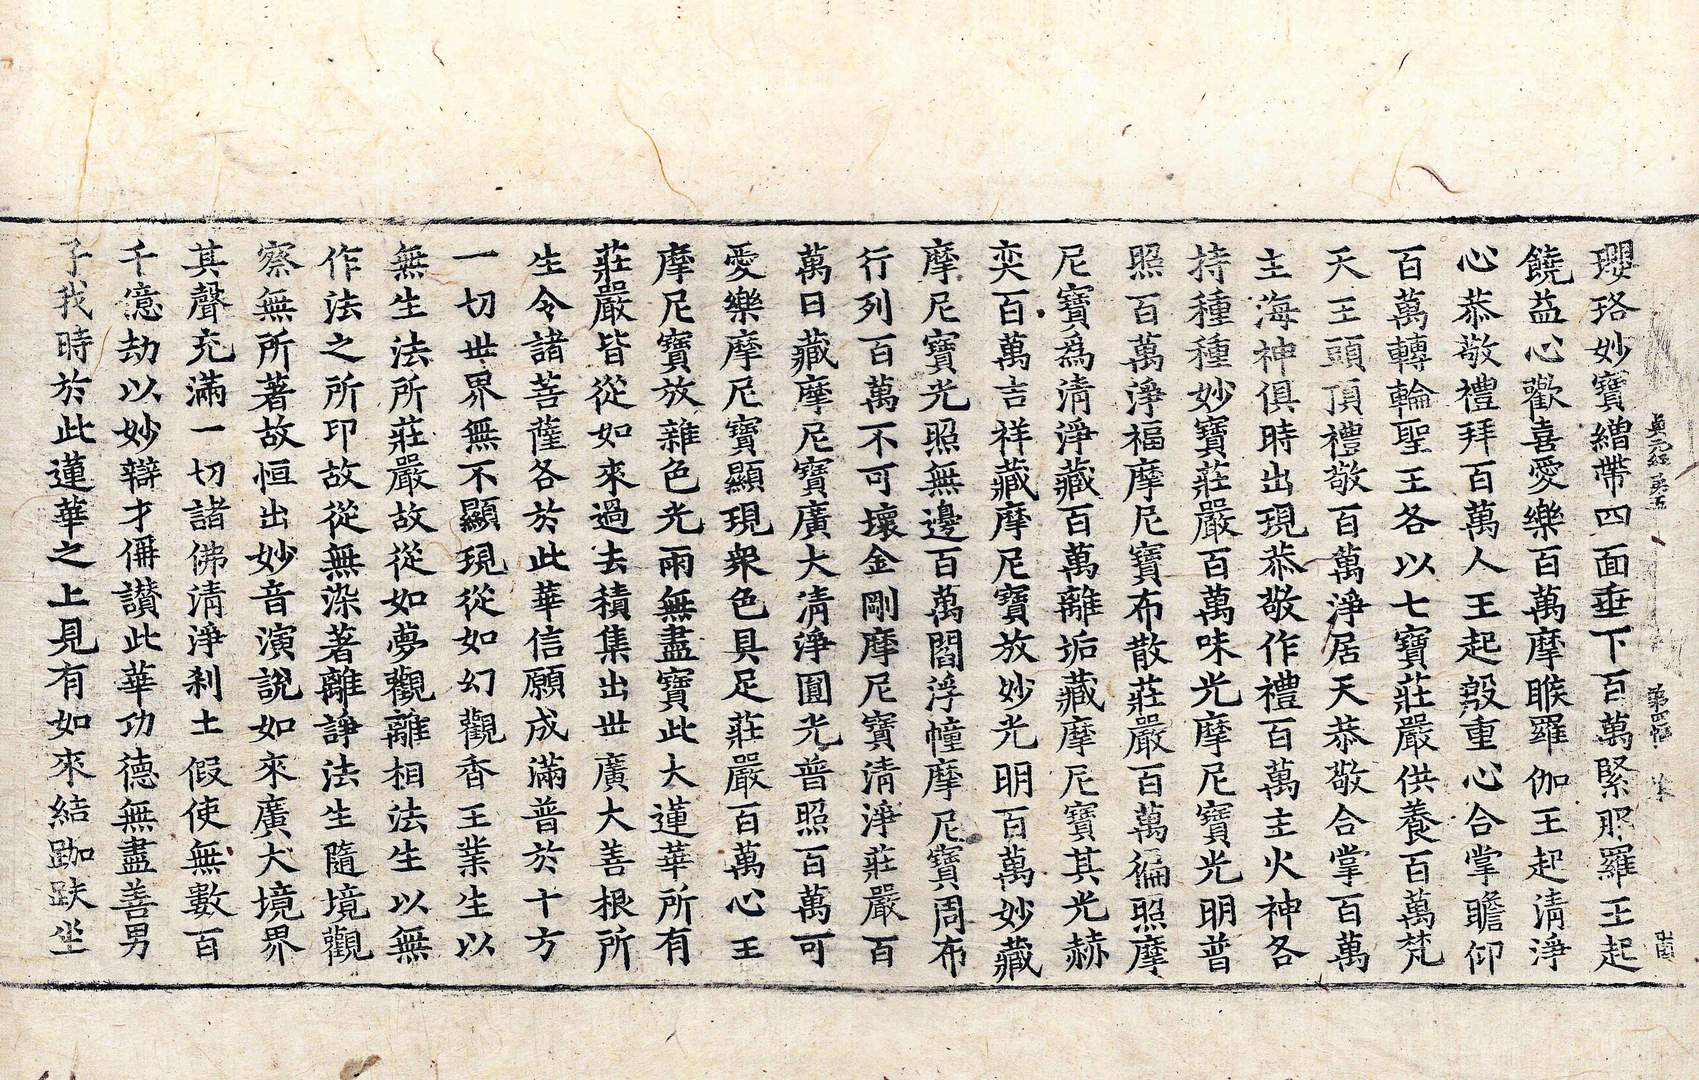 瓔珞妙寶繒帶四面垂下百萬緊那羅王起
饒益心歡喜愛樂百萬摩睺羅伽王起清淨
心恭敬禮拜百萬人王起殷重心合掌瞻仰
百萬轉輪聖王各以七寶莊嚴供養百萬梵
天王頭頂禮敬百萬淨居天恭敬合掌百萬
主海神俱時出現恭敬作禮百萬主火神各
持種種妙寶莊嚴百萬味光摩尼寶光明普
照百萬淨福摩尼寶布散莊嚴百萬徧照摩
尼寶爲清淨藏百萬離垢藏摩尼寶其光赫
奕百萬吉祥藏摩尼寶放妙光明百萬妙藏
摩尼寶光照無邊百萬閻浮幢摩尼寶周布
行列百萬不可壞金剛摩尼寶清淨莊嚴百
萬日藏摩尼寶廣大清淨圓光普照百萬可
愛樂摩尼寶顯現衆色具足莊嚴百萬心王
摩尼寶放雜色光雨無盡寶此大蓮華所有
莊嚴皆從如來過去積集出世廣大善根所
生令諸菩薩各於此華信願成滿普於十方
一切世界無不顯現從如幻觀香王業生以
無生法所莊嚴故從如夢觀離相法生以無
作法之所印故從無染著離諍法生隨境觀
察無所著故恒出妙音演說如來廣大境界
其聲充滿一切諸佛清淨刹土假使無數百
千億劫以妙辯才稱讚此華功德無盡善男
子我時於此蓮華之上見有如來結跏趺坐